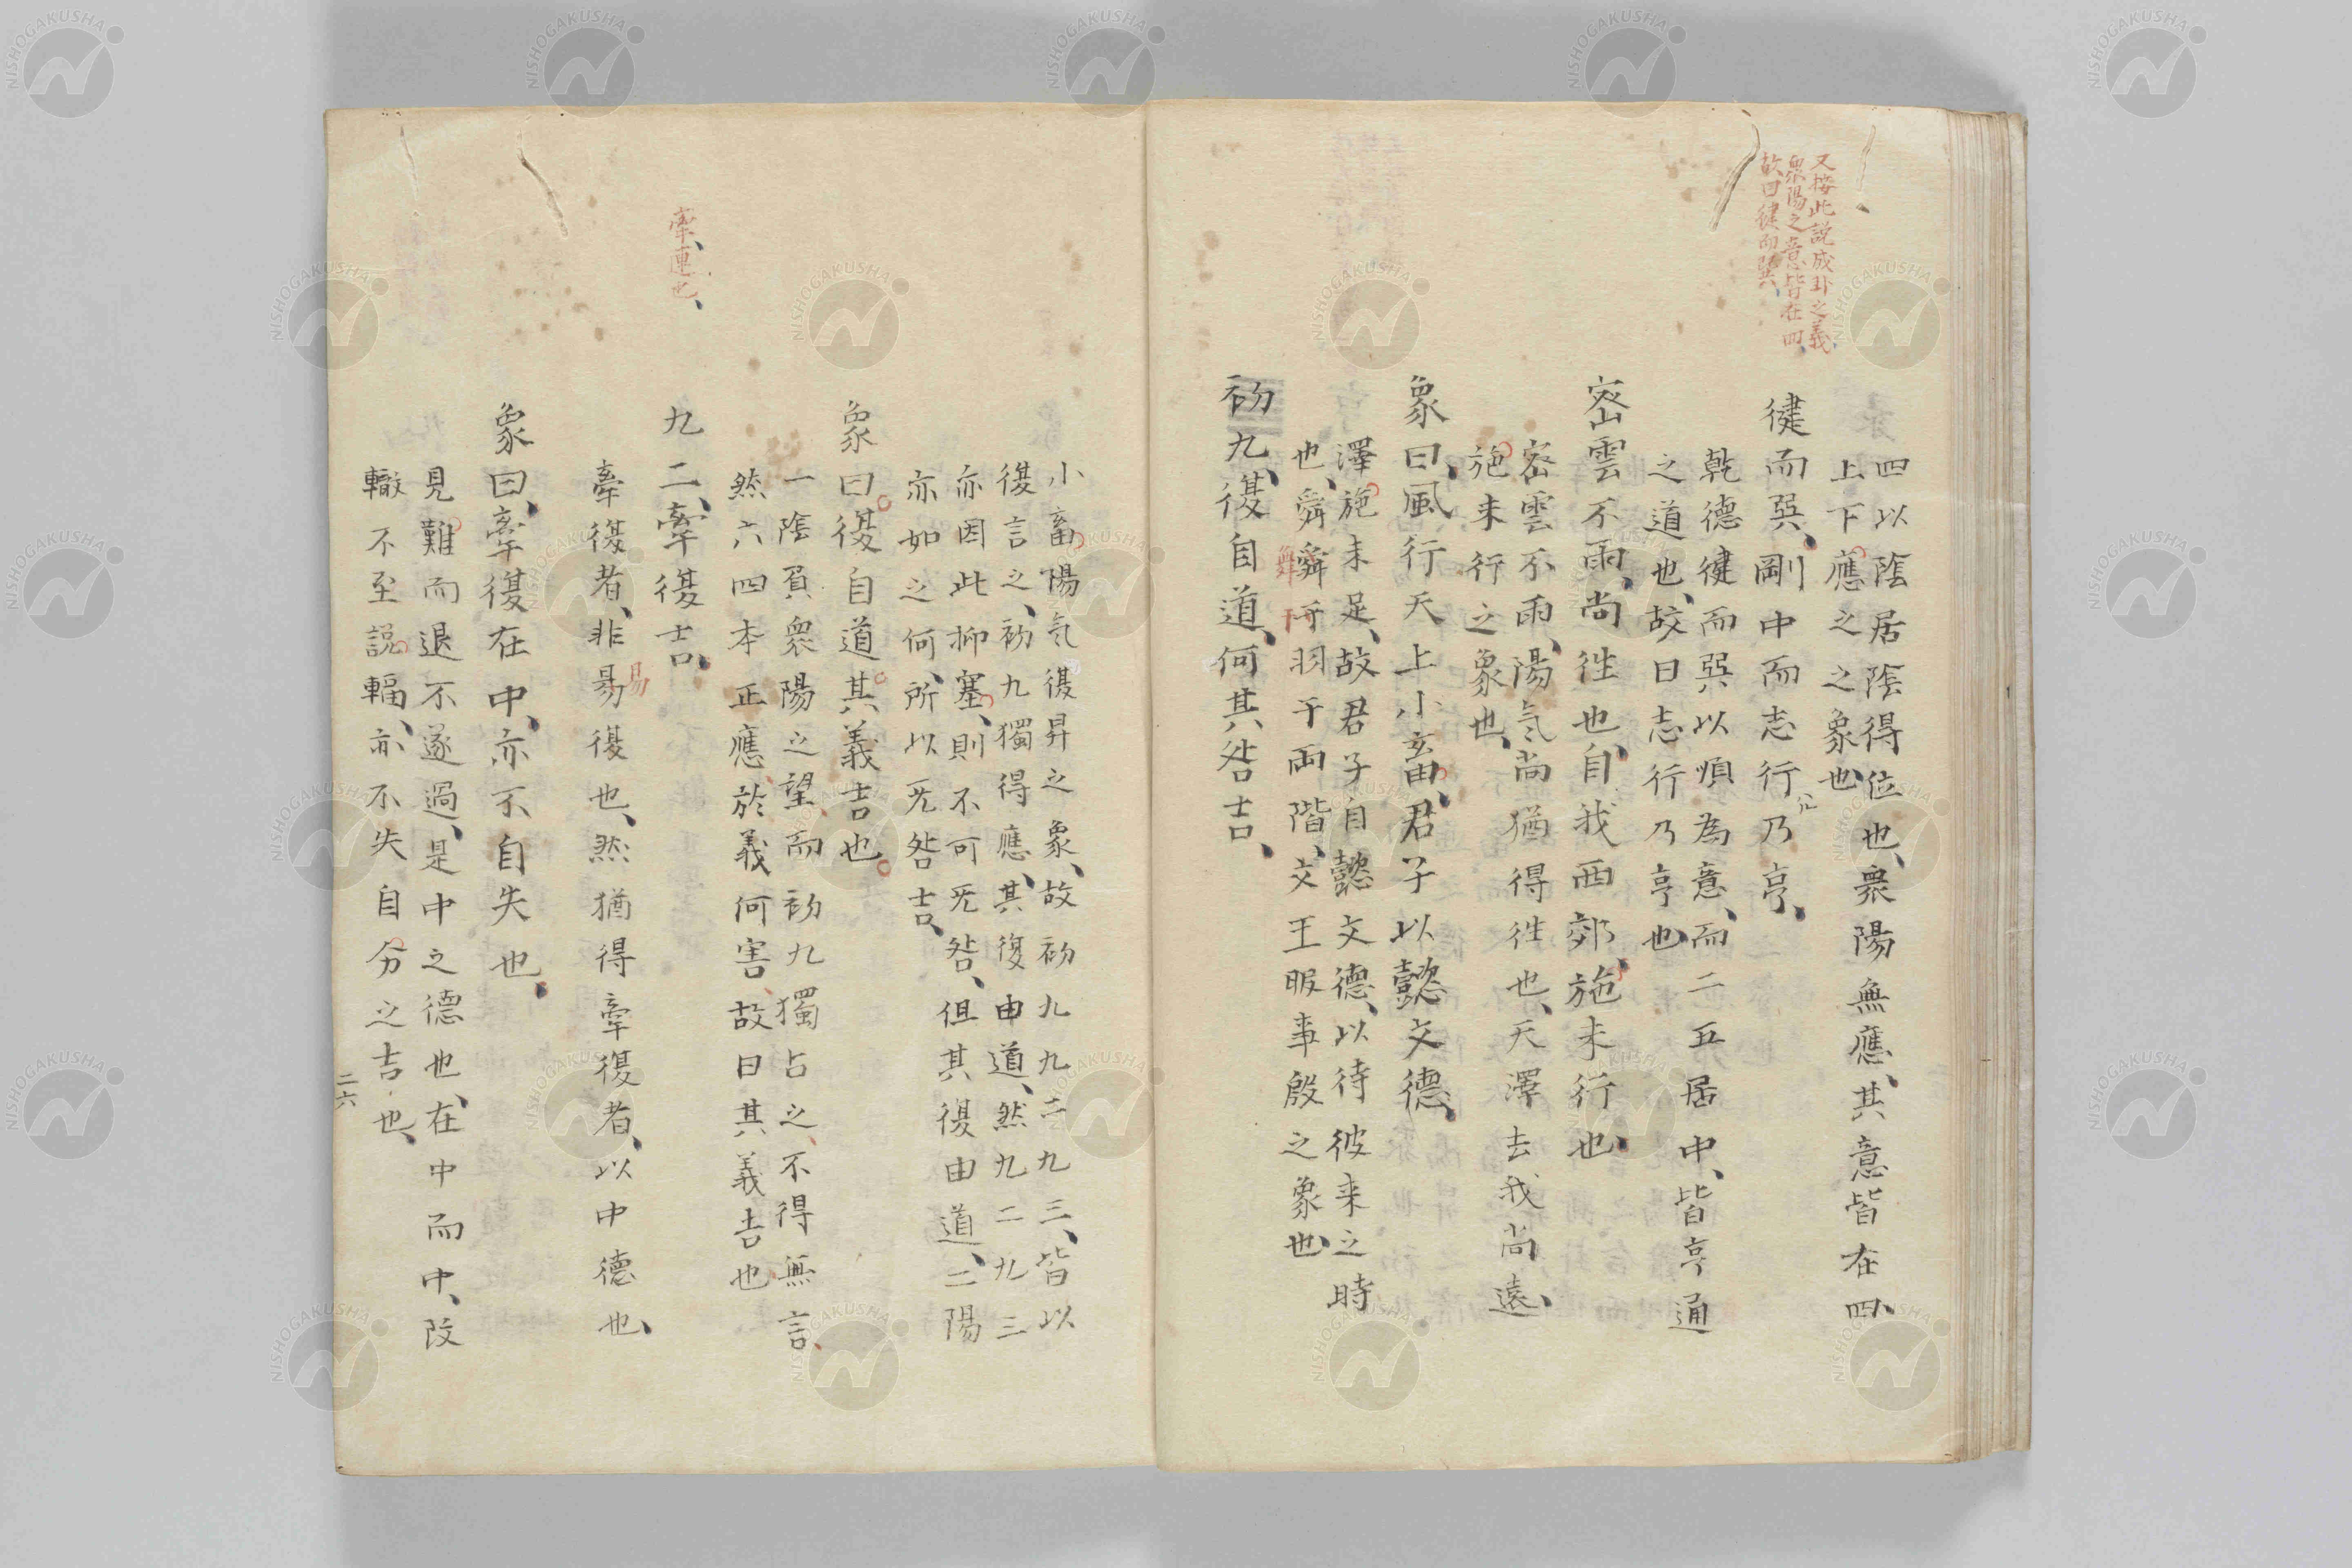 又按此説成卦之義
衆陽之意皆在四
故曰健而巽
四以陰居陰得位也、衆陽無應、其意皆在四、
上下應之之象也
健而巽、剛中而志行、乃亨、
乾德健而巽以順為意、而二五居中、皆亨通
之道也、故曰志行乃亨也
密雲不雨、尚往也、自我西郊、施未行也、
密雲不雨、陽氣尚猶得往也、天澤去我尚遠、
施未行之象也、
象曰、風行天上小畜、君子以懿文德、
澤施未足、故君子自懿文德、以待彼来之時
也、舜舞干羽于両階、文王服事殷之象也、
舞干
初九、復自道、何其咎吉、
小畜陽氣復昇之象、故初九九二九三、皆以
復言之、初九獨得應、其復由道、然九二九三
亦因此抑塞、則不可无咎、但其復由道、二陽
亦如之何、所以无咎吉、
象曰復自道其義吉也
一陰負衆陽之望、而初九獨占之、不得無言、
然六四本正應於義何害、故曰其義吉也
牽、連也、
九二、牽復吉、
牽復者、非易復也、然猶得牽復者、以中德也、
易
象曰、牽復在中、亦不自失也、
見難而退不遂過、是中之德也、在中而中、故
轍不至説輻、亦不失自分之吉也、
二六
NISHOGAKUSHA